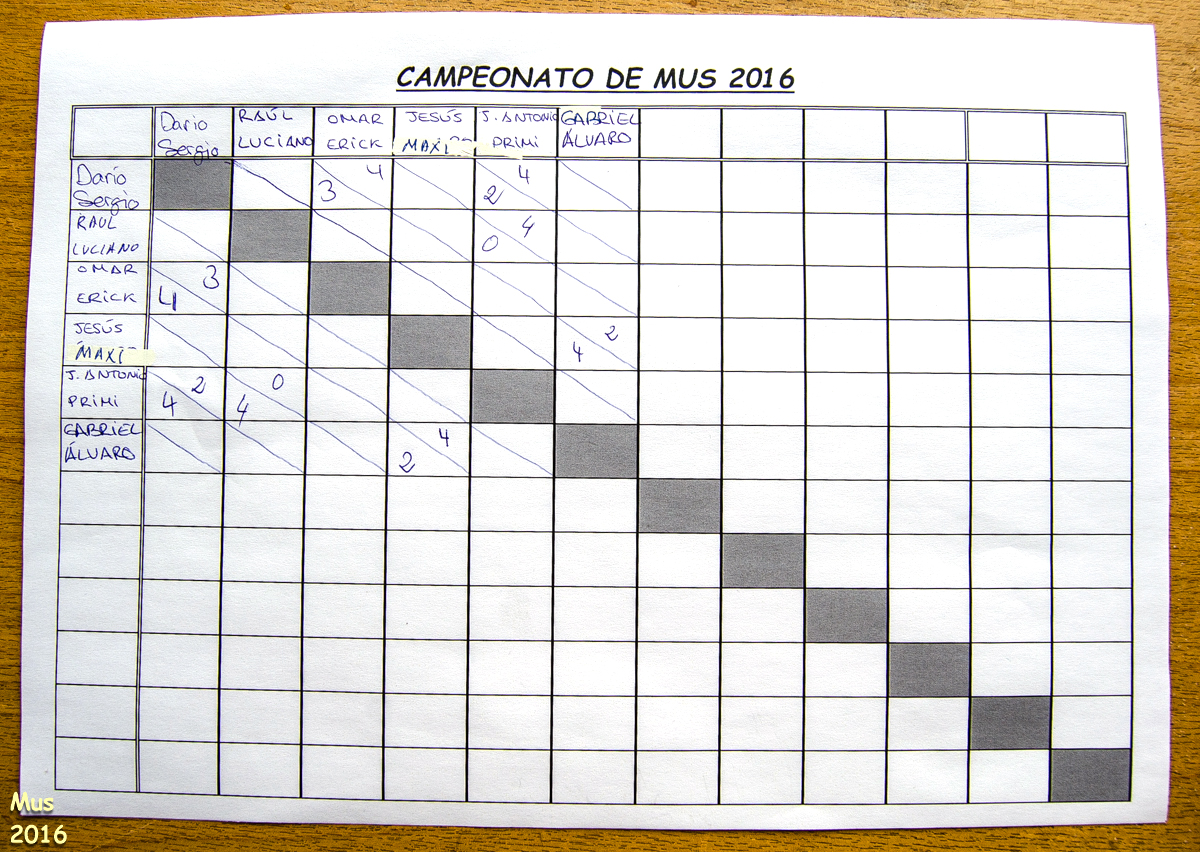 CAMPEONATO DE MUS 2016
Dario RAÚL OMAR JESÚS J. ANTONIO GABRIEL
Sergio LUCIANO ERICK MAXI PRIMI ÁLVARO
Darío 4 4
Sergio 3 2
RAUL 4
LUCIANO 0
OMAR 3
ERICK 4
JESÚS 2
MAXI 4
J. ANTONIO 2 0
PRIMI 4 4
GABRIEL 4
ÁLVARO 2
Mus
2016